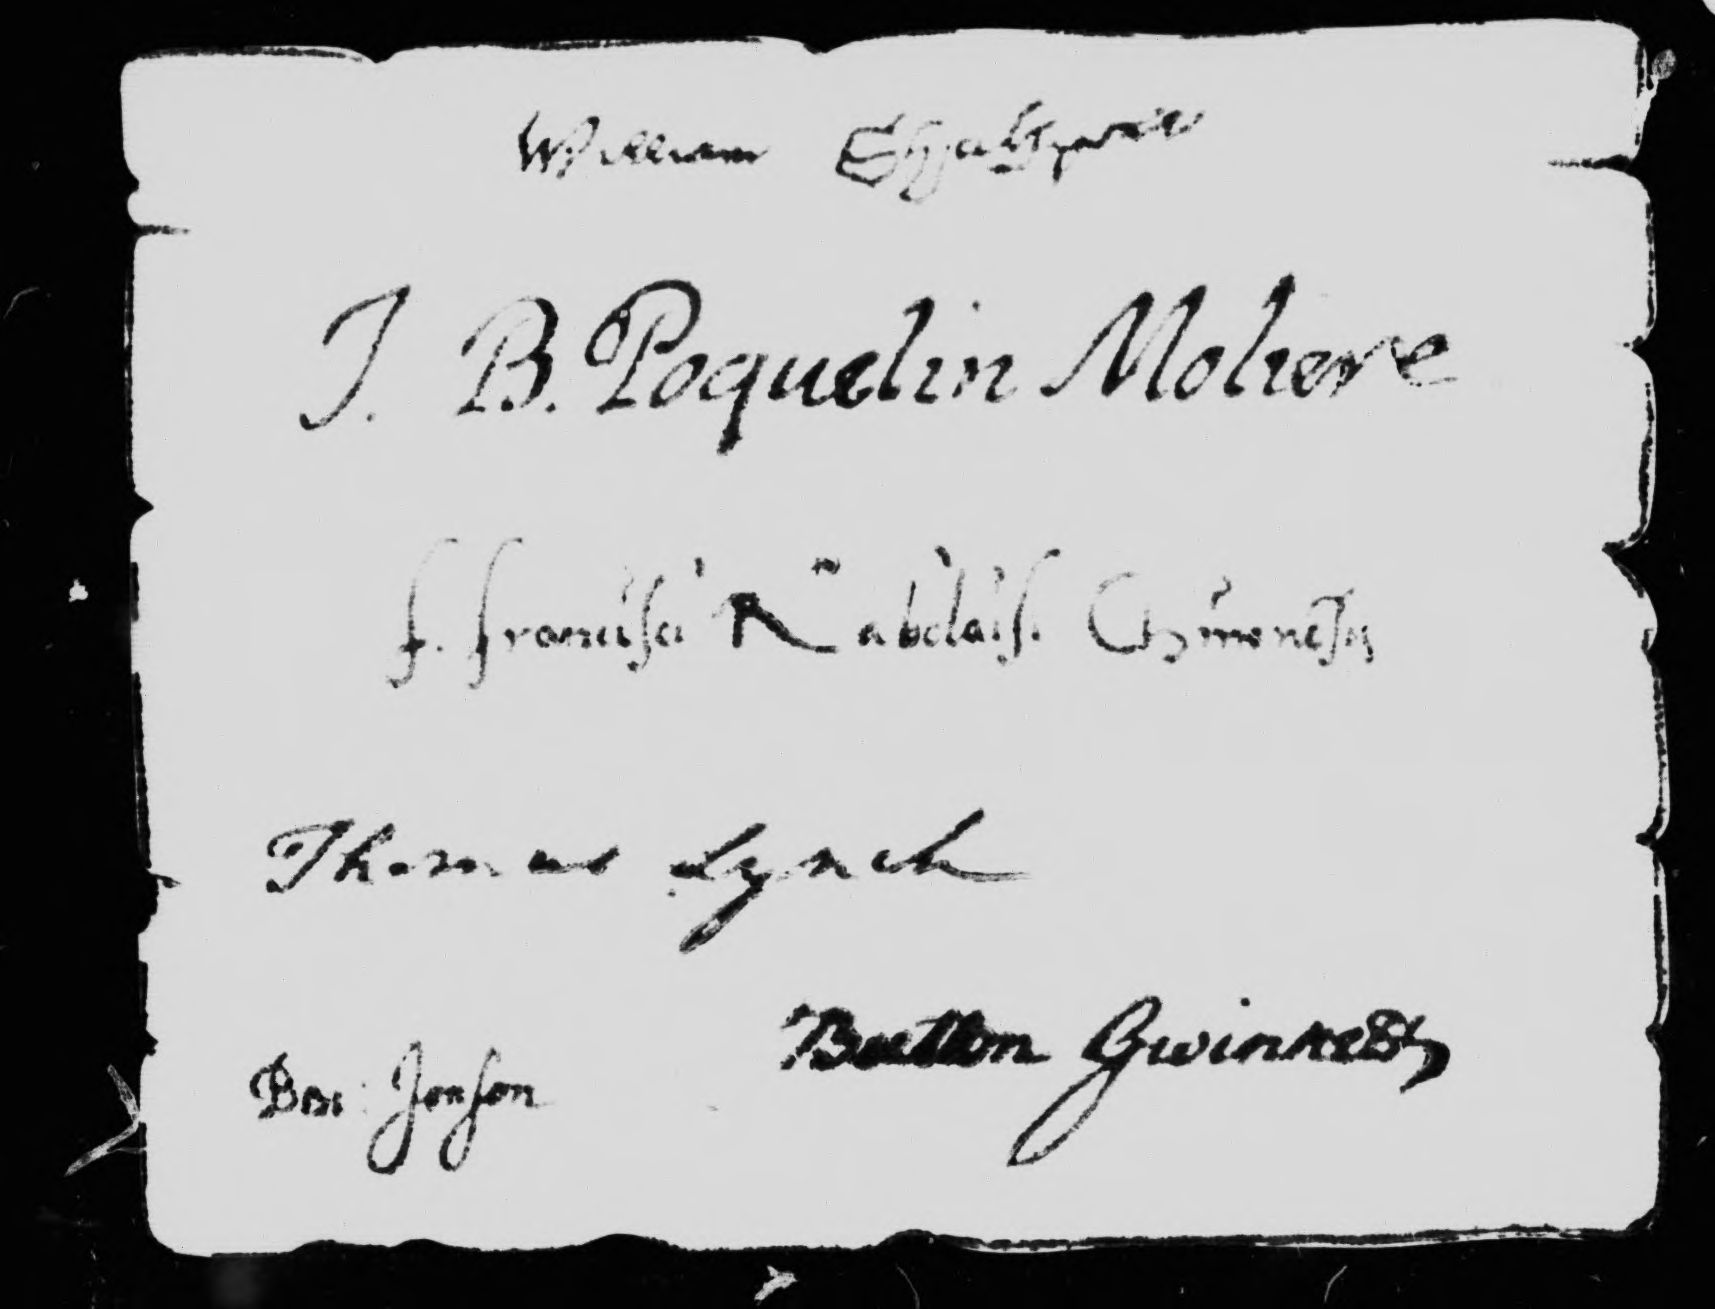 William Shakspere
J. B. Poquelin Moliere
f. franciſci Rabelaiſi Chinonēſis
Thomas Lynch
Button Gwinnett
Ben: Jonſon